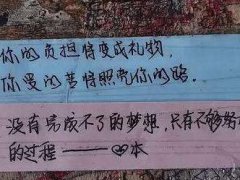 你的负担将变成礼物，
你受的苦将照亮你的路．
没有完成不了的梦想，只有不够努力
的过程——